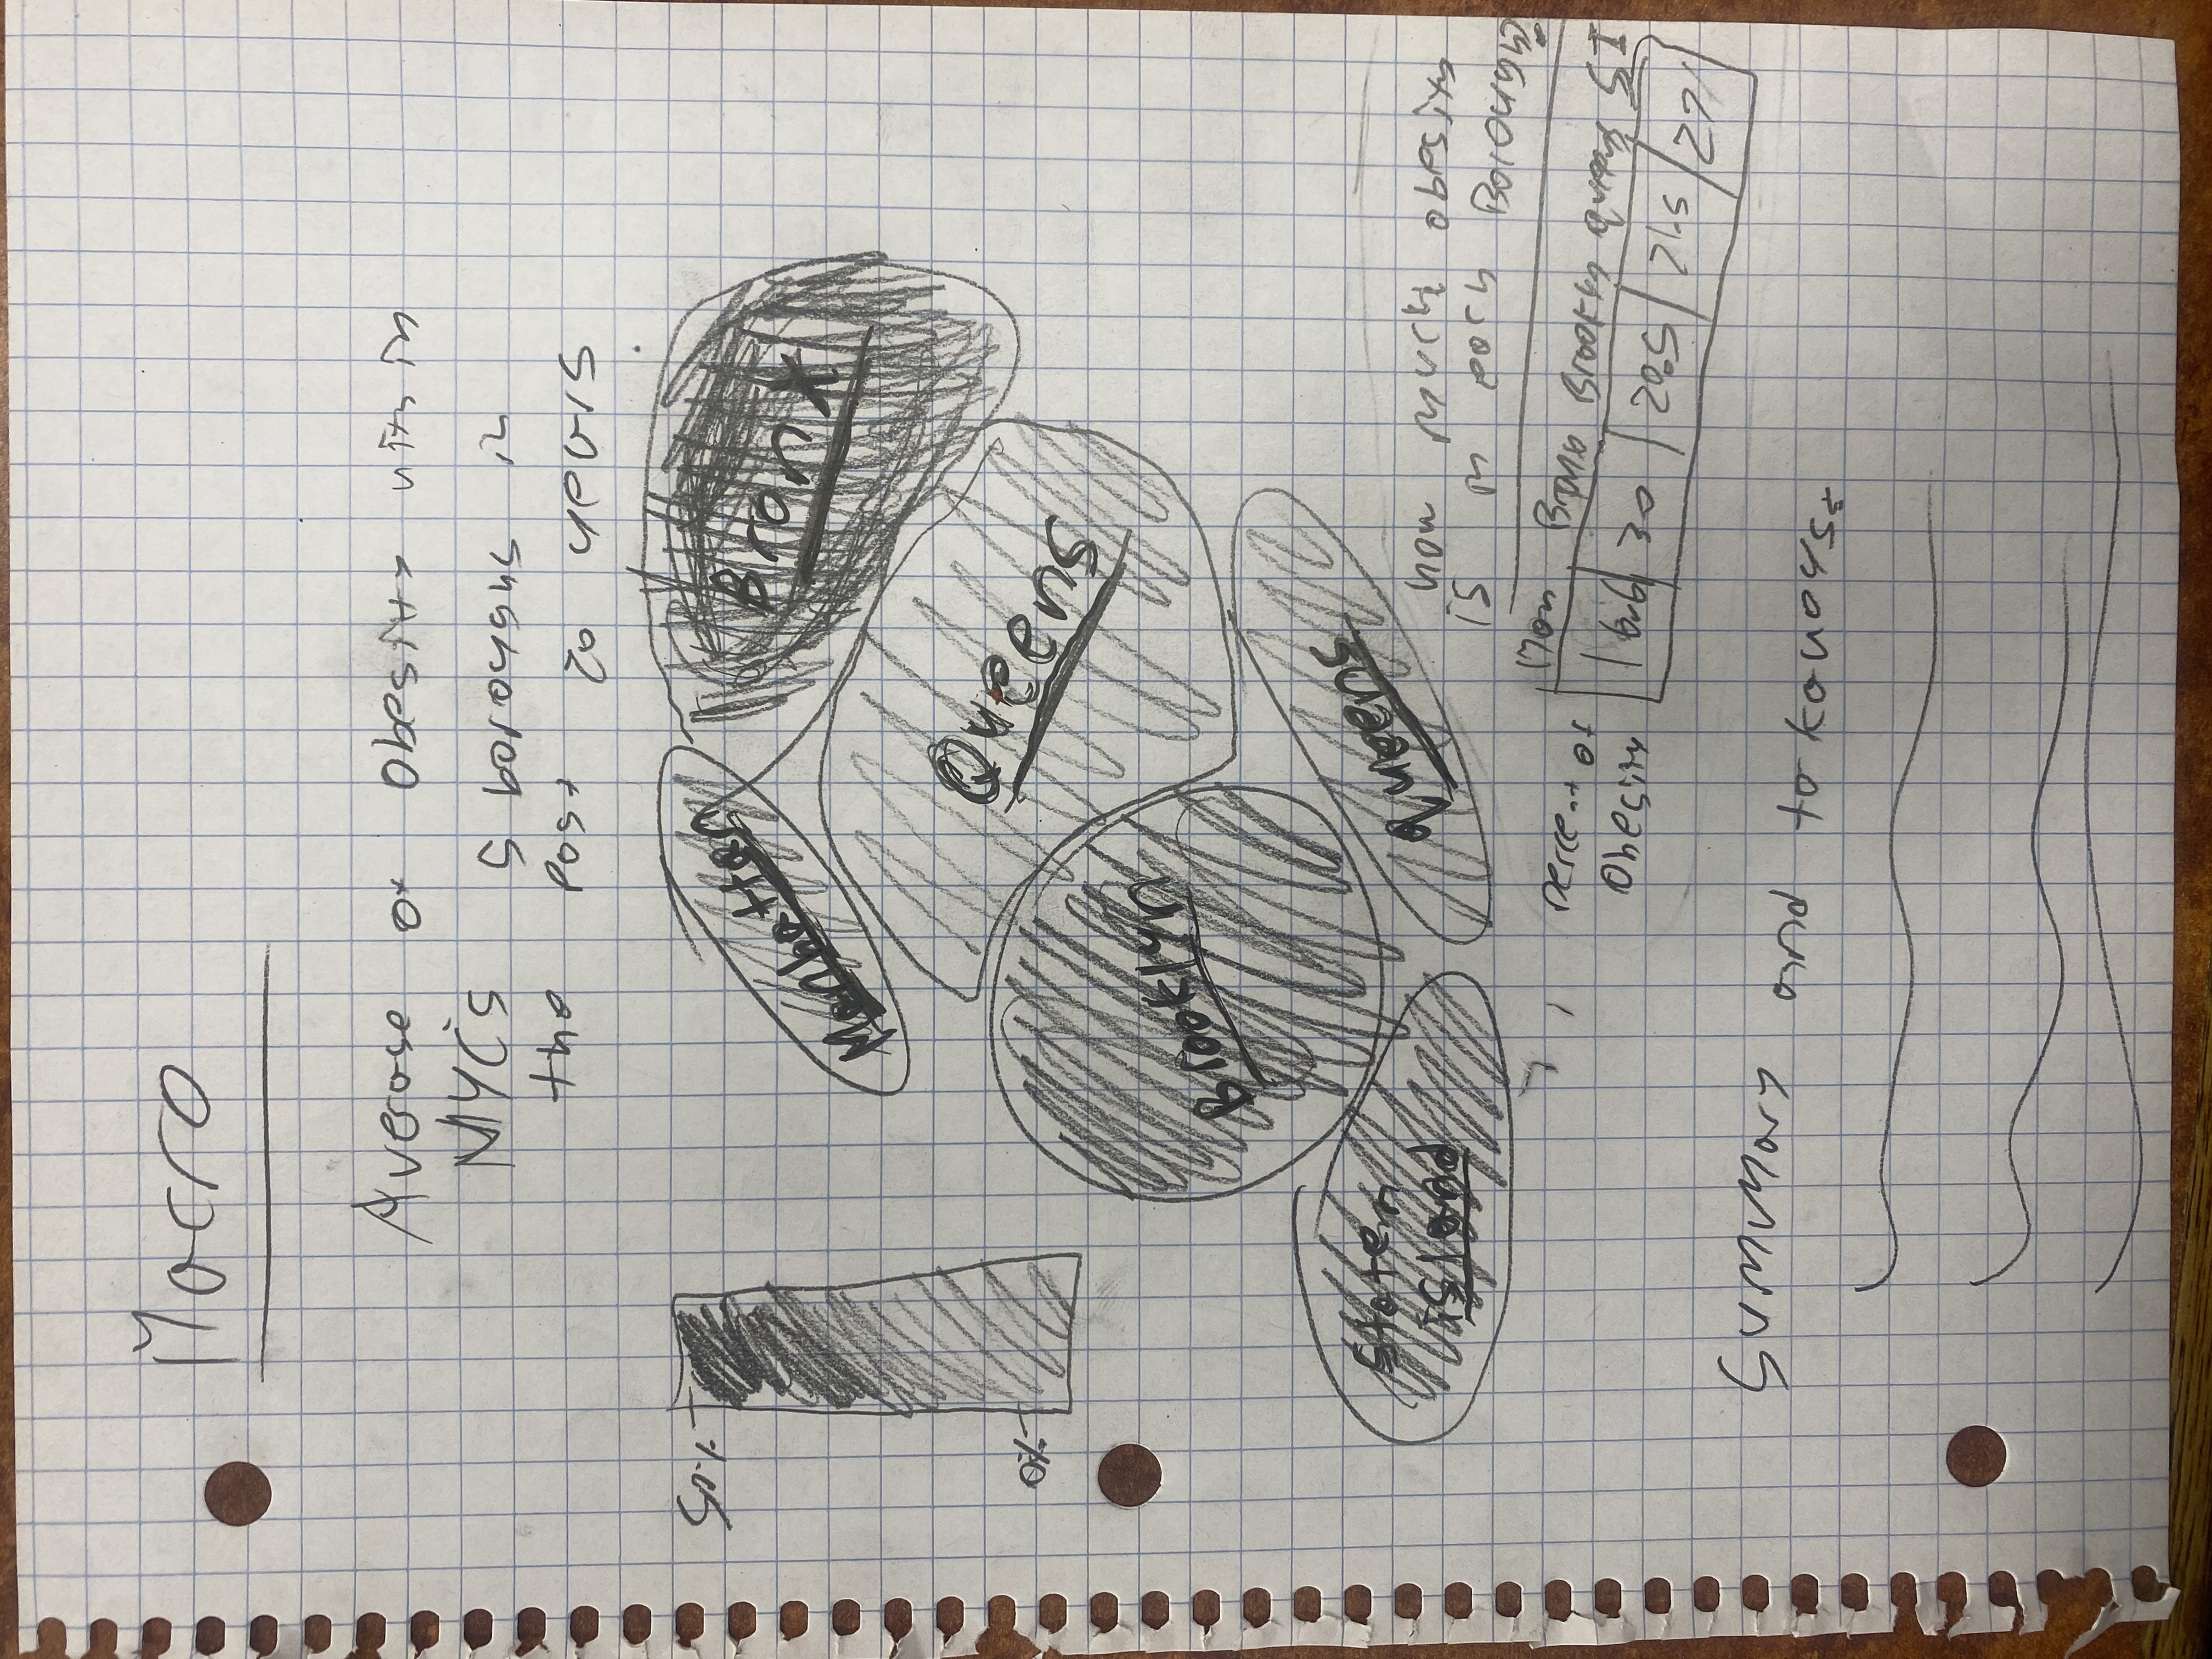 Macro
Average of Obesity within
NYC's 5 boroughs in
the past 20 years
Manhattan
Bronx
0%
Queens
Brooklyn
Staten
island
Queens
how much obesity
is in each Borough
percent of
obesity
Man Bronx Brooklyn Queens SI
30
Summary and